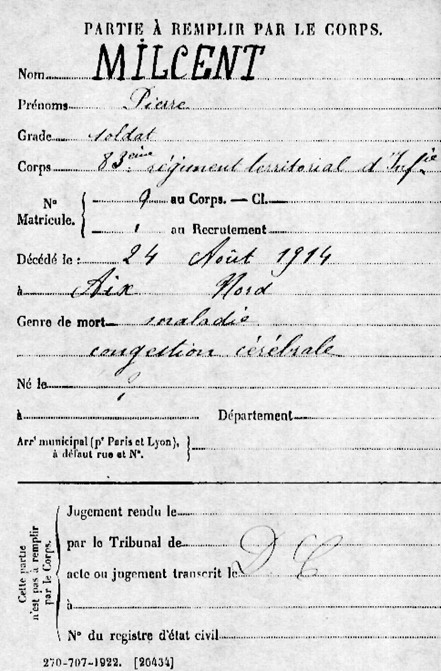 PARTIE À REMPLIR PAR LE CORPS.
Nom MILCENT
Prénoms Pierre
Grade soldat
Corps 83ème régiment territorial d'Infie
N° Matricule. { ? au Corps. — Cl.
au Recrutement
Décédé le : 24 Août 1914
à Aix Nord
Genre de mort maladie
congestion cérébrale
Né le ?
à Département
Arrt municipal (pr Paris et Lyon), à défaut rue et N°.
Cette partie n'est pas à remplir par le Corps.
Jugement rendu le
par le Tribunal de
acte ou jugement transcrit le D C
à
N° du registre d'état civil
270-707-1922. [20434]